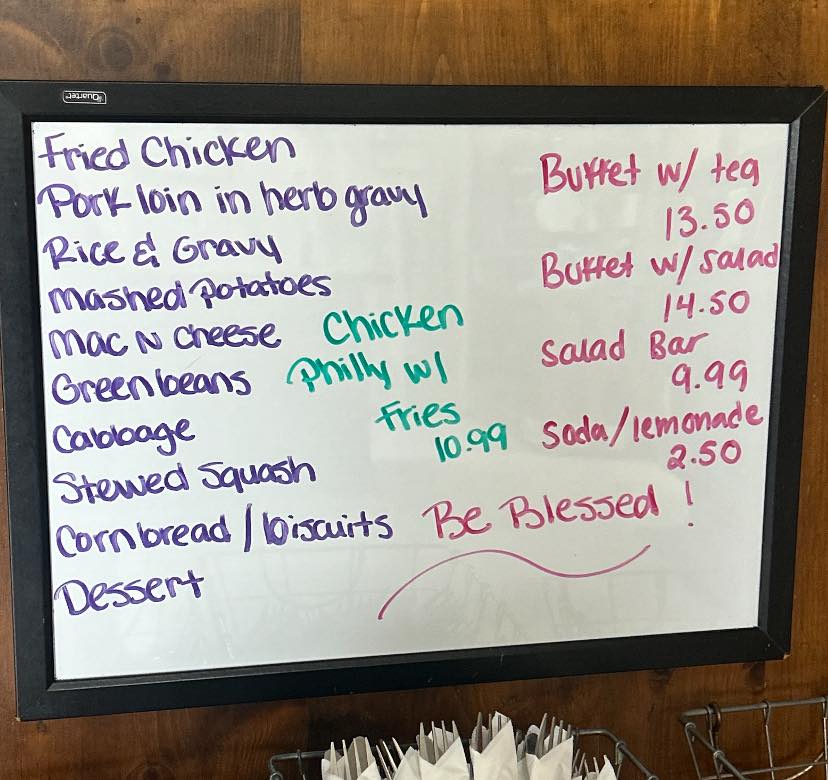 Quartet
Fried Chicken
Pork loin in herb gravy
Rice & Gravy
Mashed Potatoes
Mac N Cheese
Green beans
Cabbage
Stewed Squash
Cornbread / biscuits
Dessert
Chicken
Philly w/
Fries
10.99
Buffet w/ tea
13.50
Buffet w/ salad
14.50
Salad Bar
9.99
Soda/lemonade
2.50
Be Blessed !